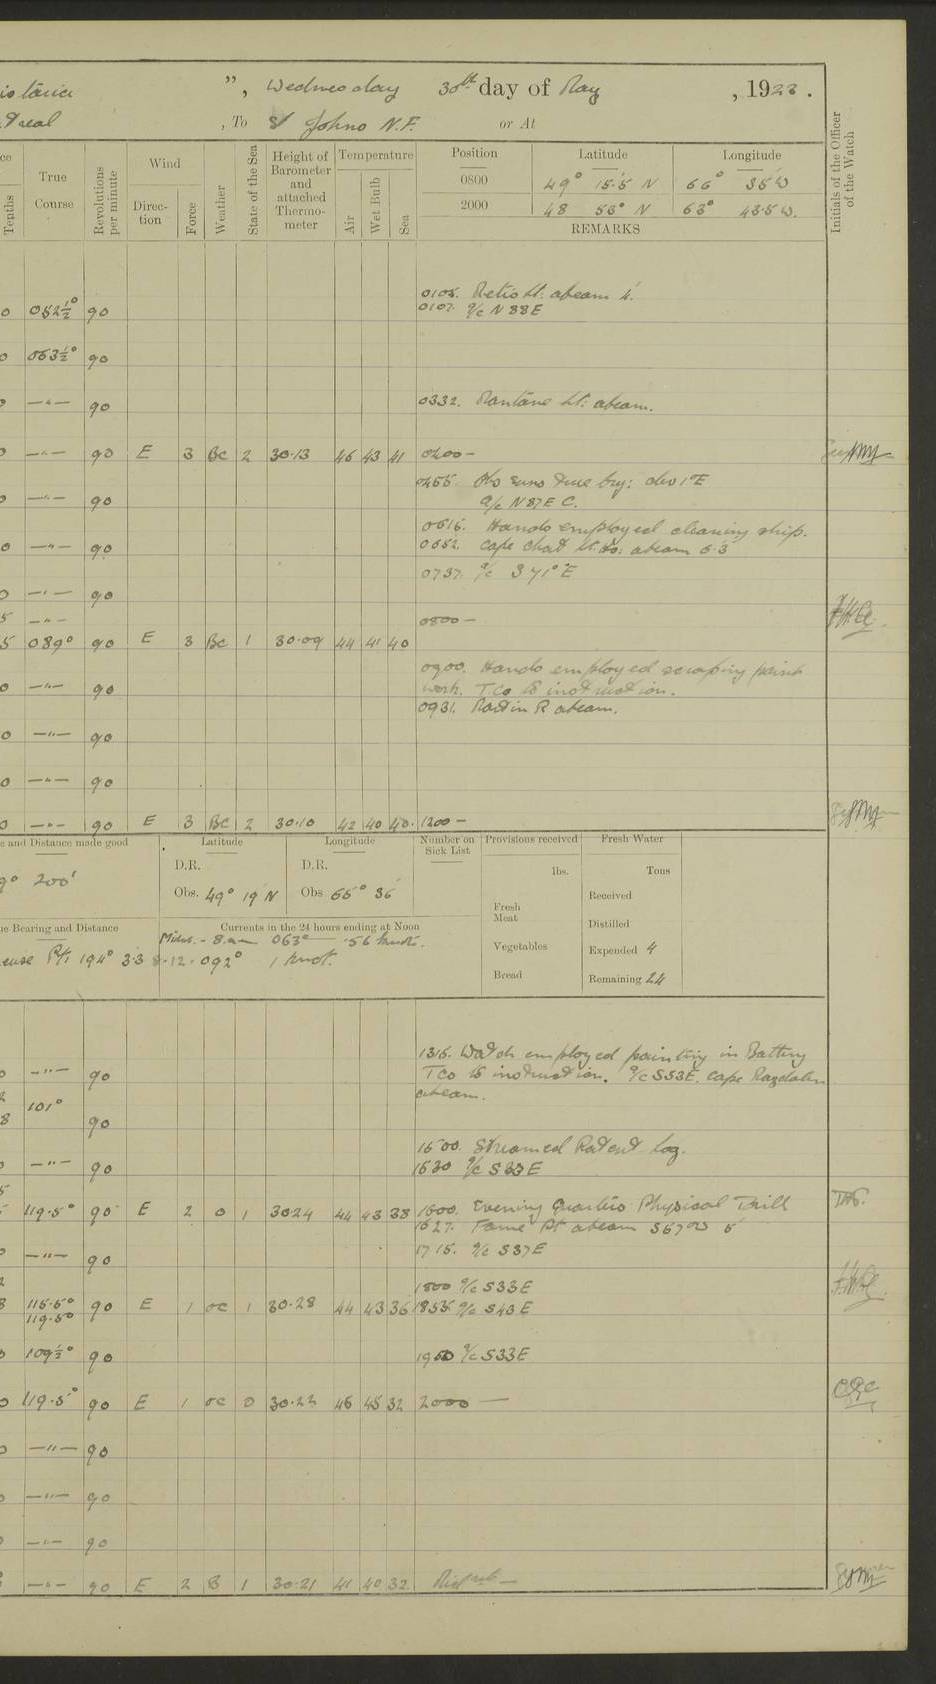 ", Wednesday 30th day of May , 1923.
, To St Johns N.F. or At
True Course
Tenths
Revolutions per minute
Wind
Direction
Force
Weather
State of the Sea
Height of Barometer and attached Thermometer
Temperature
Air
Wet Bulb
Sea
Position
Latitude
Longitude
0800 49° 15.5 N 66° 35' W
2000 48 53° N 63° 43.5 W.
REMARKS
Initials of the Officer of the Watch
0105. Metis Lt: abeam 4'.
052½° 90 0107. a/c N 88 E
063½° 90
—"— 90 0332. Mantane Lt: abeam.
—"— 90 E 3 BC 2 30.13 46 43 41 0400 —
—"— 90 0455. Obs suns true brg: dev 1°E
a/c N 87 E C.
0615. Hands employed cleaning ship.
—"— 90 0652. Cape Chat Lt. Ho: abeam 5.3
0737. a/c S 71° E
—"— 90
—"— 0800 —
089° 90 E 3 BC 1 30.09 44 41 40
0900. Hands employed scraping paint
—"— 90 work. T.Co to instruction.
0931. Martin R abeam.
—"— 90
—"— 90
—"— 90 E 3 BC 2 30.10 42 40 40. 1200 —
and Distance made good
200'
Latitude
D.R.
Obs. 49° 19' N
Longitude
D.R.
Obs 65° 36'
Bearing and Distance
194° 3.3
Currents in the 24 hours ending at Noon
Midt. - 8 am 063° .56 knots.
8-12 - 092° 1 knot.
Number on Sick List
Provisions received
lbs.
Fresh Meat
Vegetables
Bread
Fresh Water
Tons
Received
Distilled
Expended 4
Remaining 24
1315. Watch employed painting in Battery
—"— 90 T Co to instruction. a/c S 53 E. Cape Magdalen
abeam.
101° 90
1500. Streamed Patent Log.
—"— 90 1530 a/c S 33 E
119.5° 90 E 2 O 1 30.24 44 43 38 1600. Evening Quarters Physical Drill
1627. Fame Pt abeam S 57 W 5'
—"— 90 1715. a/c S 37 E
1800 a/c S 33 E
115.5° 90 E 1 OC 1 30.28 44 43 36 1835 a/c S 43 E
119.5°
109½° 90 1950 a/c S 33 E
119.5° 90 E 1 OC 0 30.23 46 45 32 2000 —
—"— 90
—"— 90
—"— 90
—"— 90 E 2 B 1 30.21 41 40 32. Midnt —